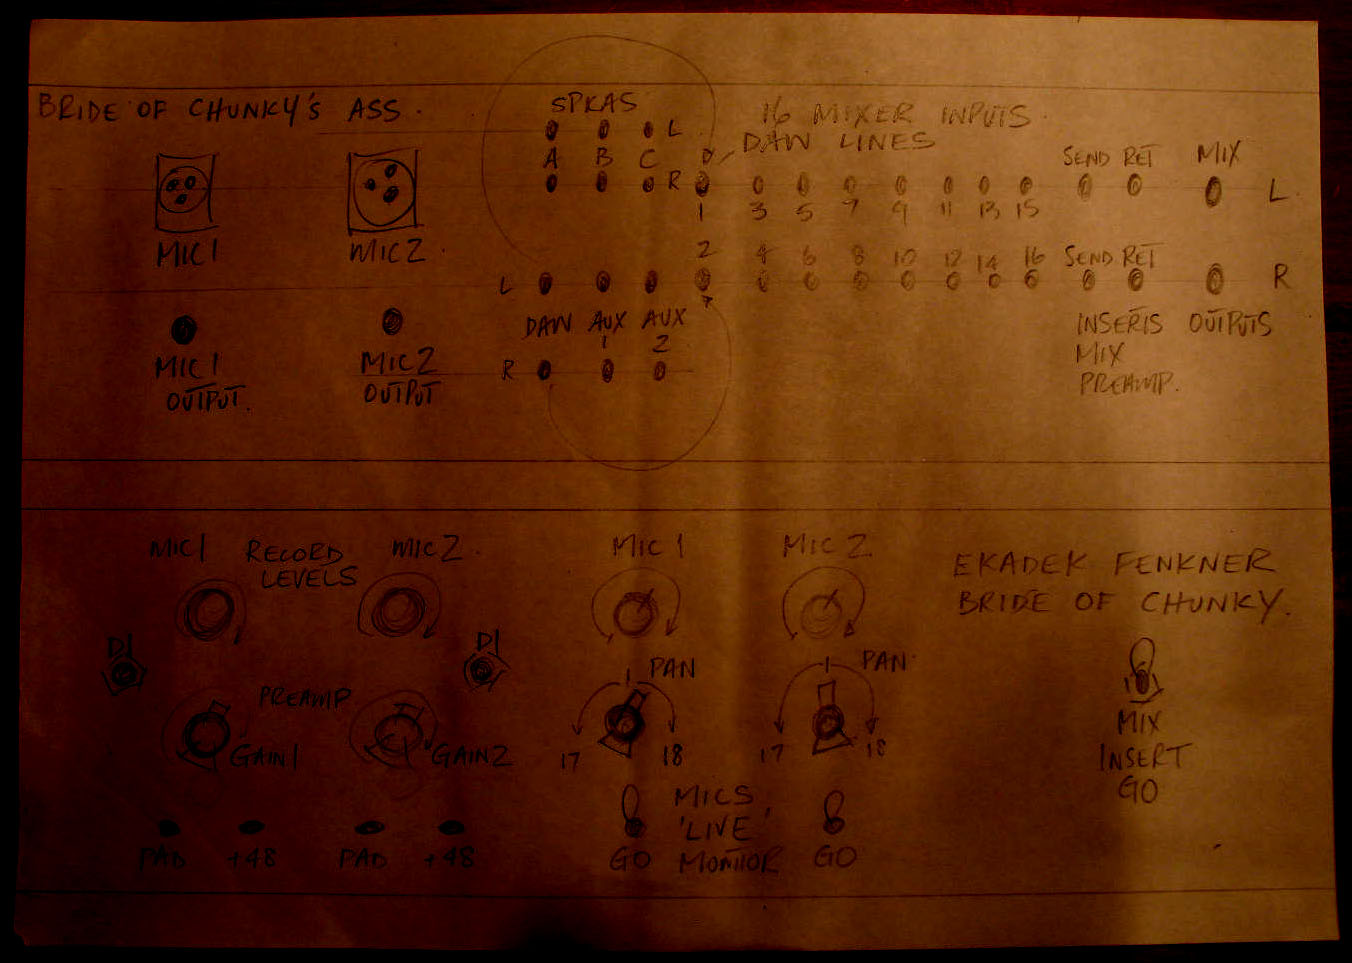 BRIDE OF CHUNKY'S ASS.
SPKRS
L
A B C
R
16 MIXER INPUTS.
DAW LINES
SEND RET MIX
L
1 3 5 7 9 11 13 15
MIC 1
MIC 2.
2 4 6 8 10 12 14 16
SEND RET
L
R
DAW AUX 1 AUX 2
R
INSERTS OUTPUTS
MIX
PREAMP.
MIC 1
OUTPUT.
MIC 2
OUTPUT
MIC 1 RECORD LEVELS MIC 2.
DI
DI
PREAMP
GAIN 1
GAIN 2
PAD +48 PAD +48
MIC 1 MIC 2
PAN
PAN.
17 18
17 18
MICS
'LIVE'
GO MONITOR GO
EKADEK FENKNER
BRIDE OF CHUNKY.
MIX
INSERT
GO